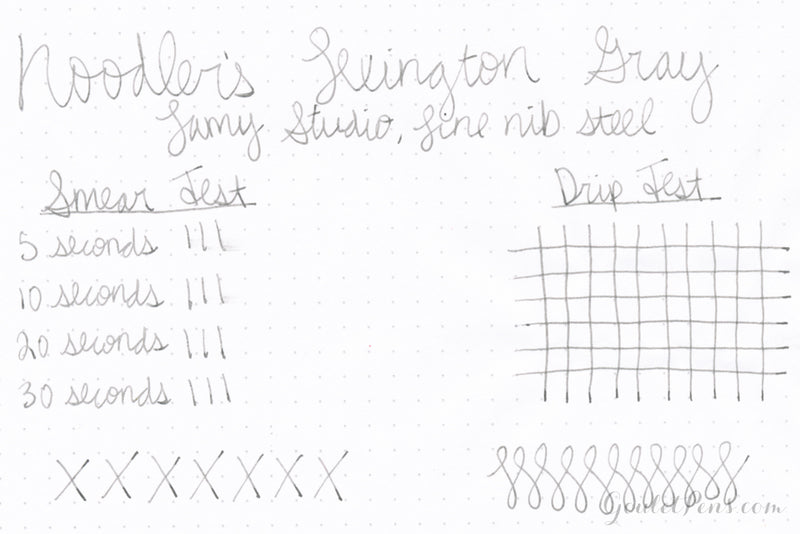 Noodler's Lexington Gray
Lamy Studio, fine nib steel
Smear Test
5 seconds
10 seconds
20 seconds
30 seconds
Drip Test
X X X X X X X
GouletPens.com